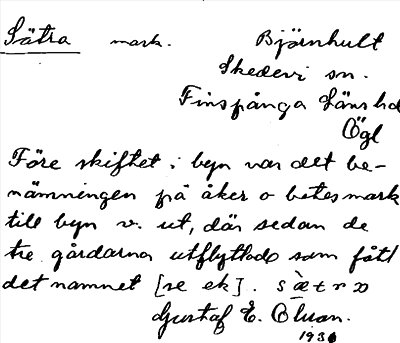 Sätra mark. Björnhult
Skedevi sn.
Finspånga Länshd
Ögl
Före skiftet i byn var det be-
nämningen på åker o betesmark
till byn v. ut, där sedan de
tre gårdarna utflyttade som fått
det namnet [se ek]. sætrɷ
Gustaf E. Olson.
1930